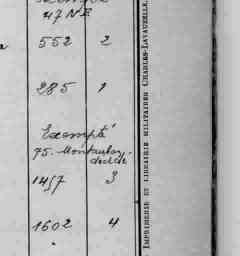 47 N E
552 2
285 1
Exempté
75. Montauban.
1457 3
1602 4
IMPRIMERIE ET LIBRAIRIE MILITAIRES CHARLES-LAVAUZELLE.